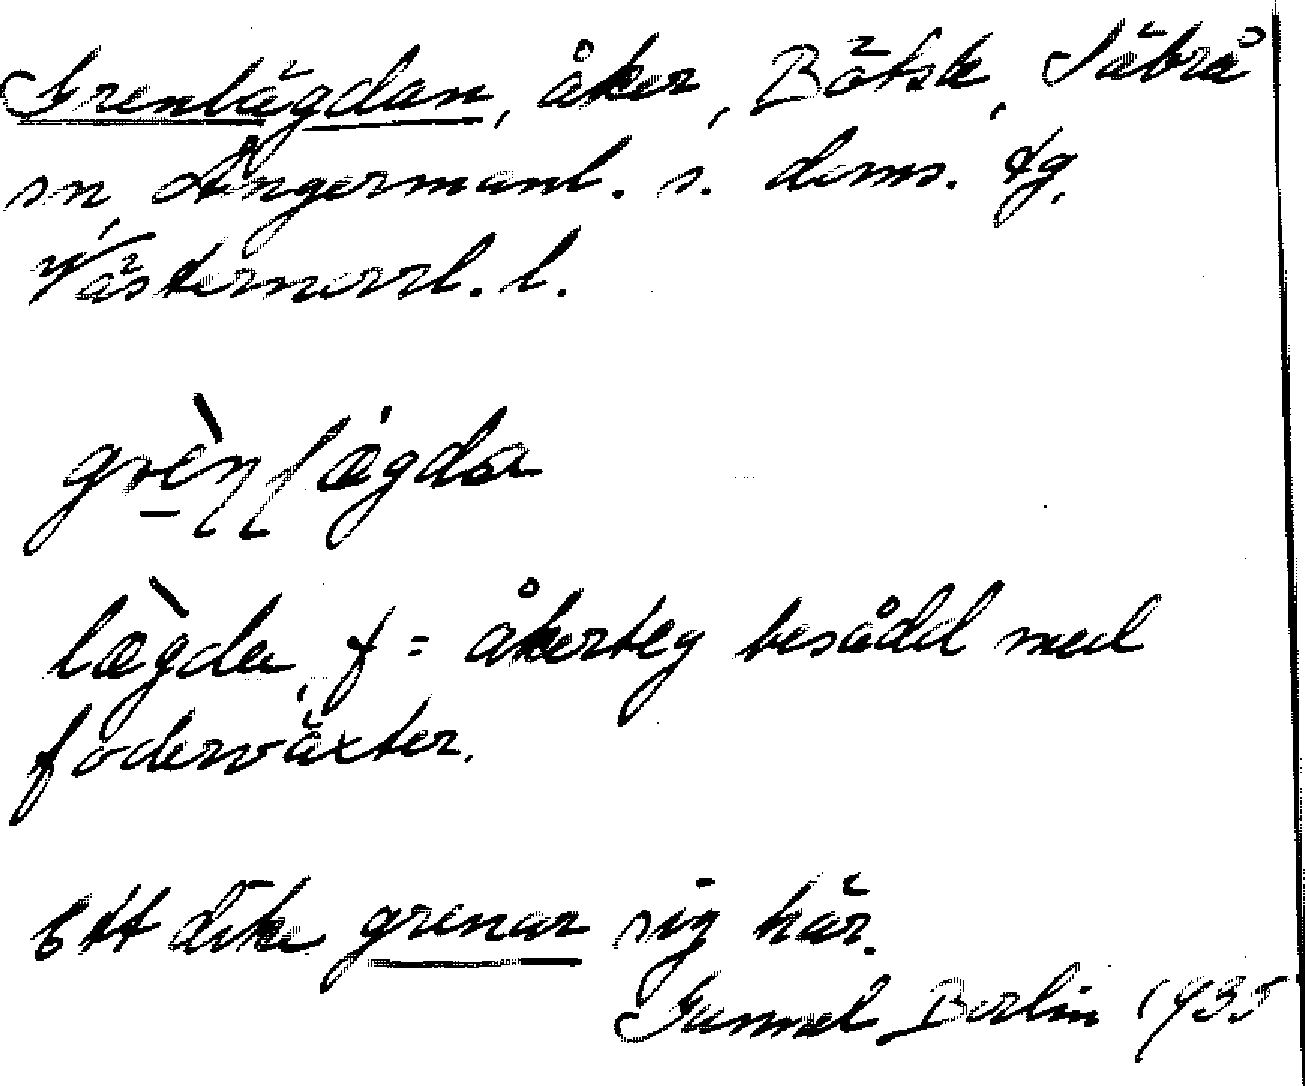 Grenlägdan, åker, Bölsk, Säbrå
sn, Ångermanl. s. doms. tg.
Västernorrl. l.
grèn lægda
lægda, f = åkerteg besådd med
foderväxter.
Ett dike grenar sig här.
Gunnel Berlin 1935